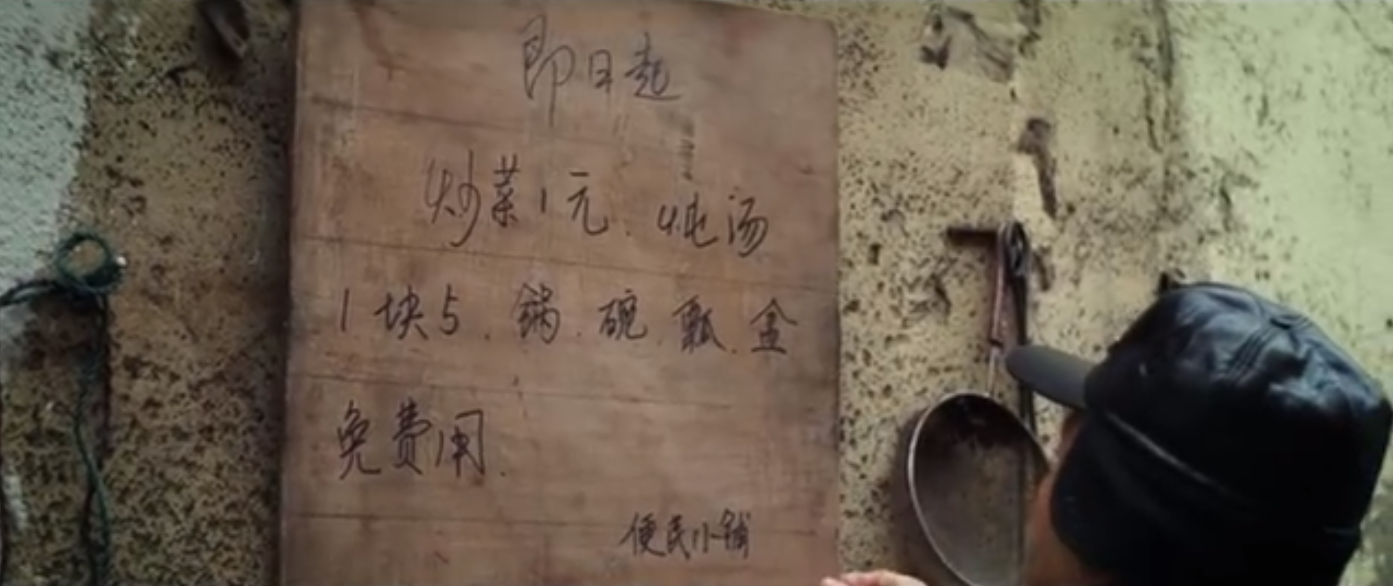 即日起
炒菜1元.炖汤
1块5.锅.碗.瓢.盆
免费用.
便民小铺